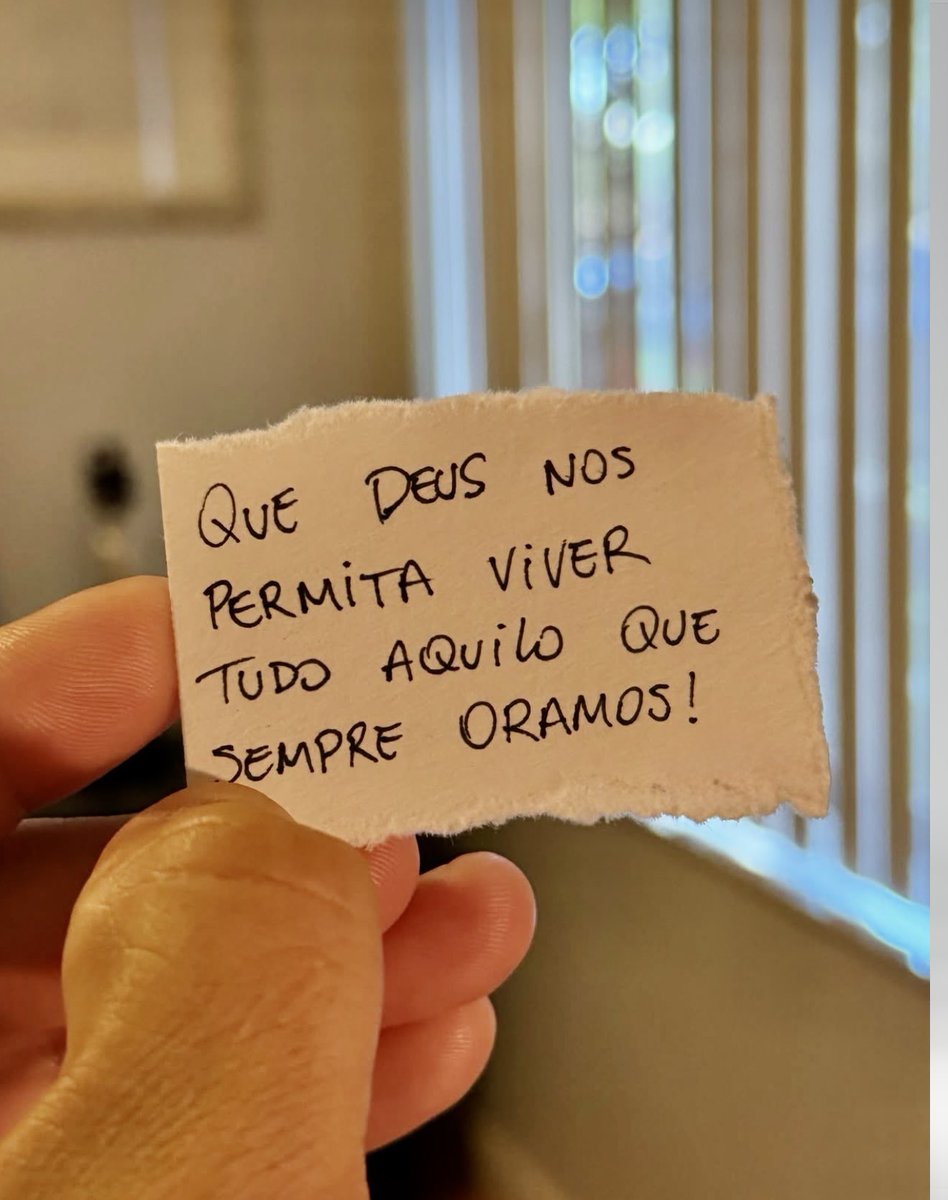 QUE DEUS NOS
PERMiTA ViVER
TUDO AQUiLO QUE
SEMPRE ORAMOS!